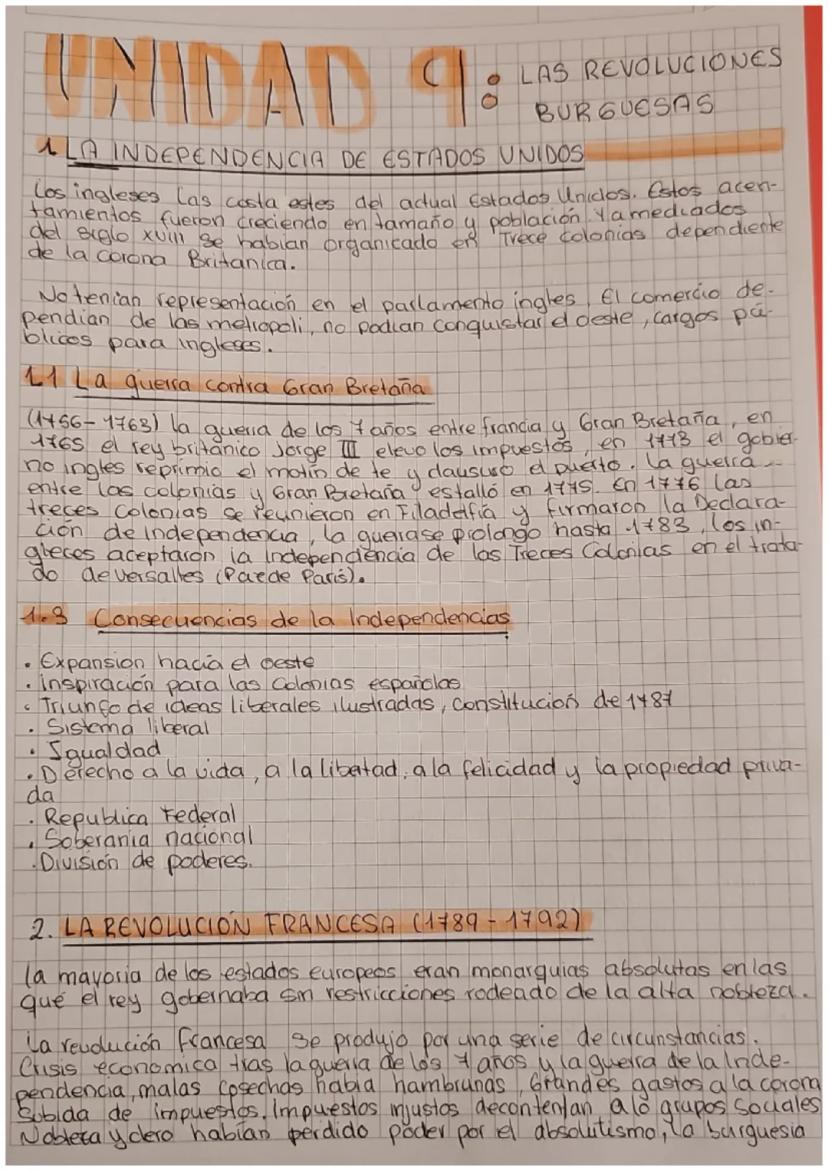 UNIDAD 9: LAS REVOLUCIONES
BURGUESAS
1 LA INDEPENDENCIA DE ESTADOS UNIDOS
Los ingleses las costa estes del actual Estados Unidos. Estos acen-
tamientos fueron creciendo en tamaño y población. Y a mediados
del siglo XVIII se habían organizado en Trece colonias dependiente
de la corona Britanica.
No tenian representación en el parlamento ingles, El comercio de-
pendian de las metropoli, no podian conquistar el oeste, cargos pú-
blicos para ingleses.
1.1 La guerra contra Gran Bretaña
(1756-1763) la guerra de los 7 años entre francia y Gran Bretaña, en
1765 el rey británico Jorge III elevo los impuestos, en 1773 el gobier-
no ingles reprimio el motín de te y clausuro el puerto. La guerra
entre las colonias y Gran Bretaña estalló en 1775. En 1776 las
treces colonias se reunieron en Filadelfia y firmaron la Declara-
ción de Independencia, la guerra se prolongo hasta 1783, los in-
gleces aceptaron la Independencia de las Treces Colonias en el trata-
do de versalles (Paz de Paris).
1.3 Consecuencias de la Independencias
· Expansion hacia el oeste
· inspiración para las colonias españolas
· Triunfo de ideas liberales ilustradas, constitución de 1787
· Sistema liberal
· Igualdad
· Derecho a la vida, a la libertad, a la felicidad y la propiedad priva-
da
· Republica Federal
· Soberania nacional
· División de poderes.
2. LA REVOLUCIÓN FRANCESA (1789-1792)
La mayoria de los estados europeos eran monarquias absolutas en las
que el rey gobernaba sin restricciones rodeado de la alta nobleza.
La revolución francesa se produjo por una serie de circunstancias.
Crisis economica tras la guerra de los 7 años y la guerra de la Inde-
pendencia, malas cosechas habia hambrunas, Grandes gastos a la corona
Subida de impuestos. Impuestos injustos decontentan a lo grupos sociales
Nobleza y clero habían perdido poder por el absolutismo, la burguesia